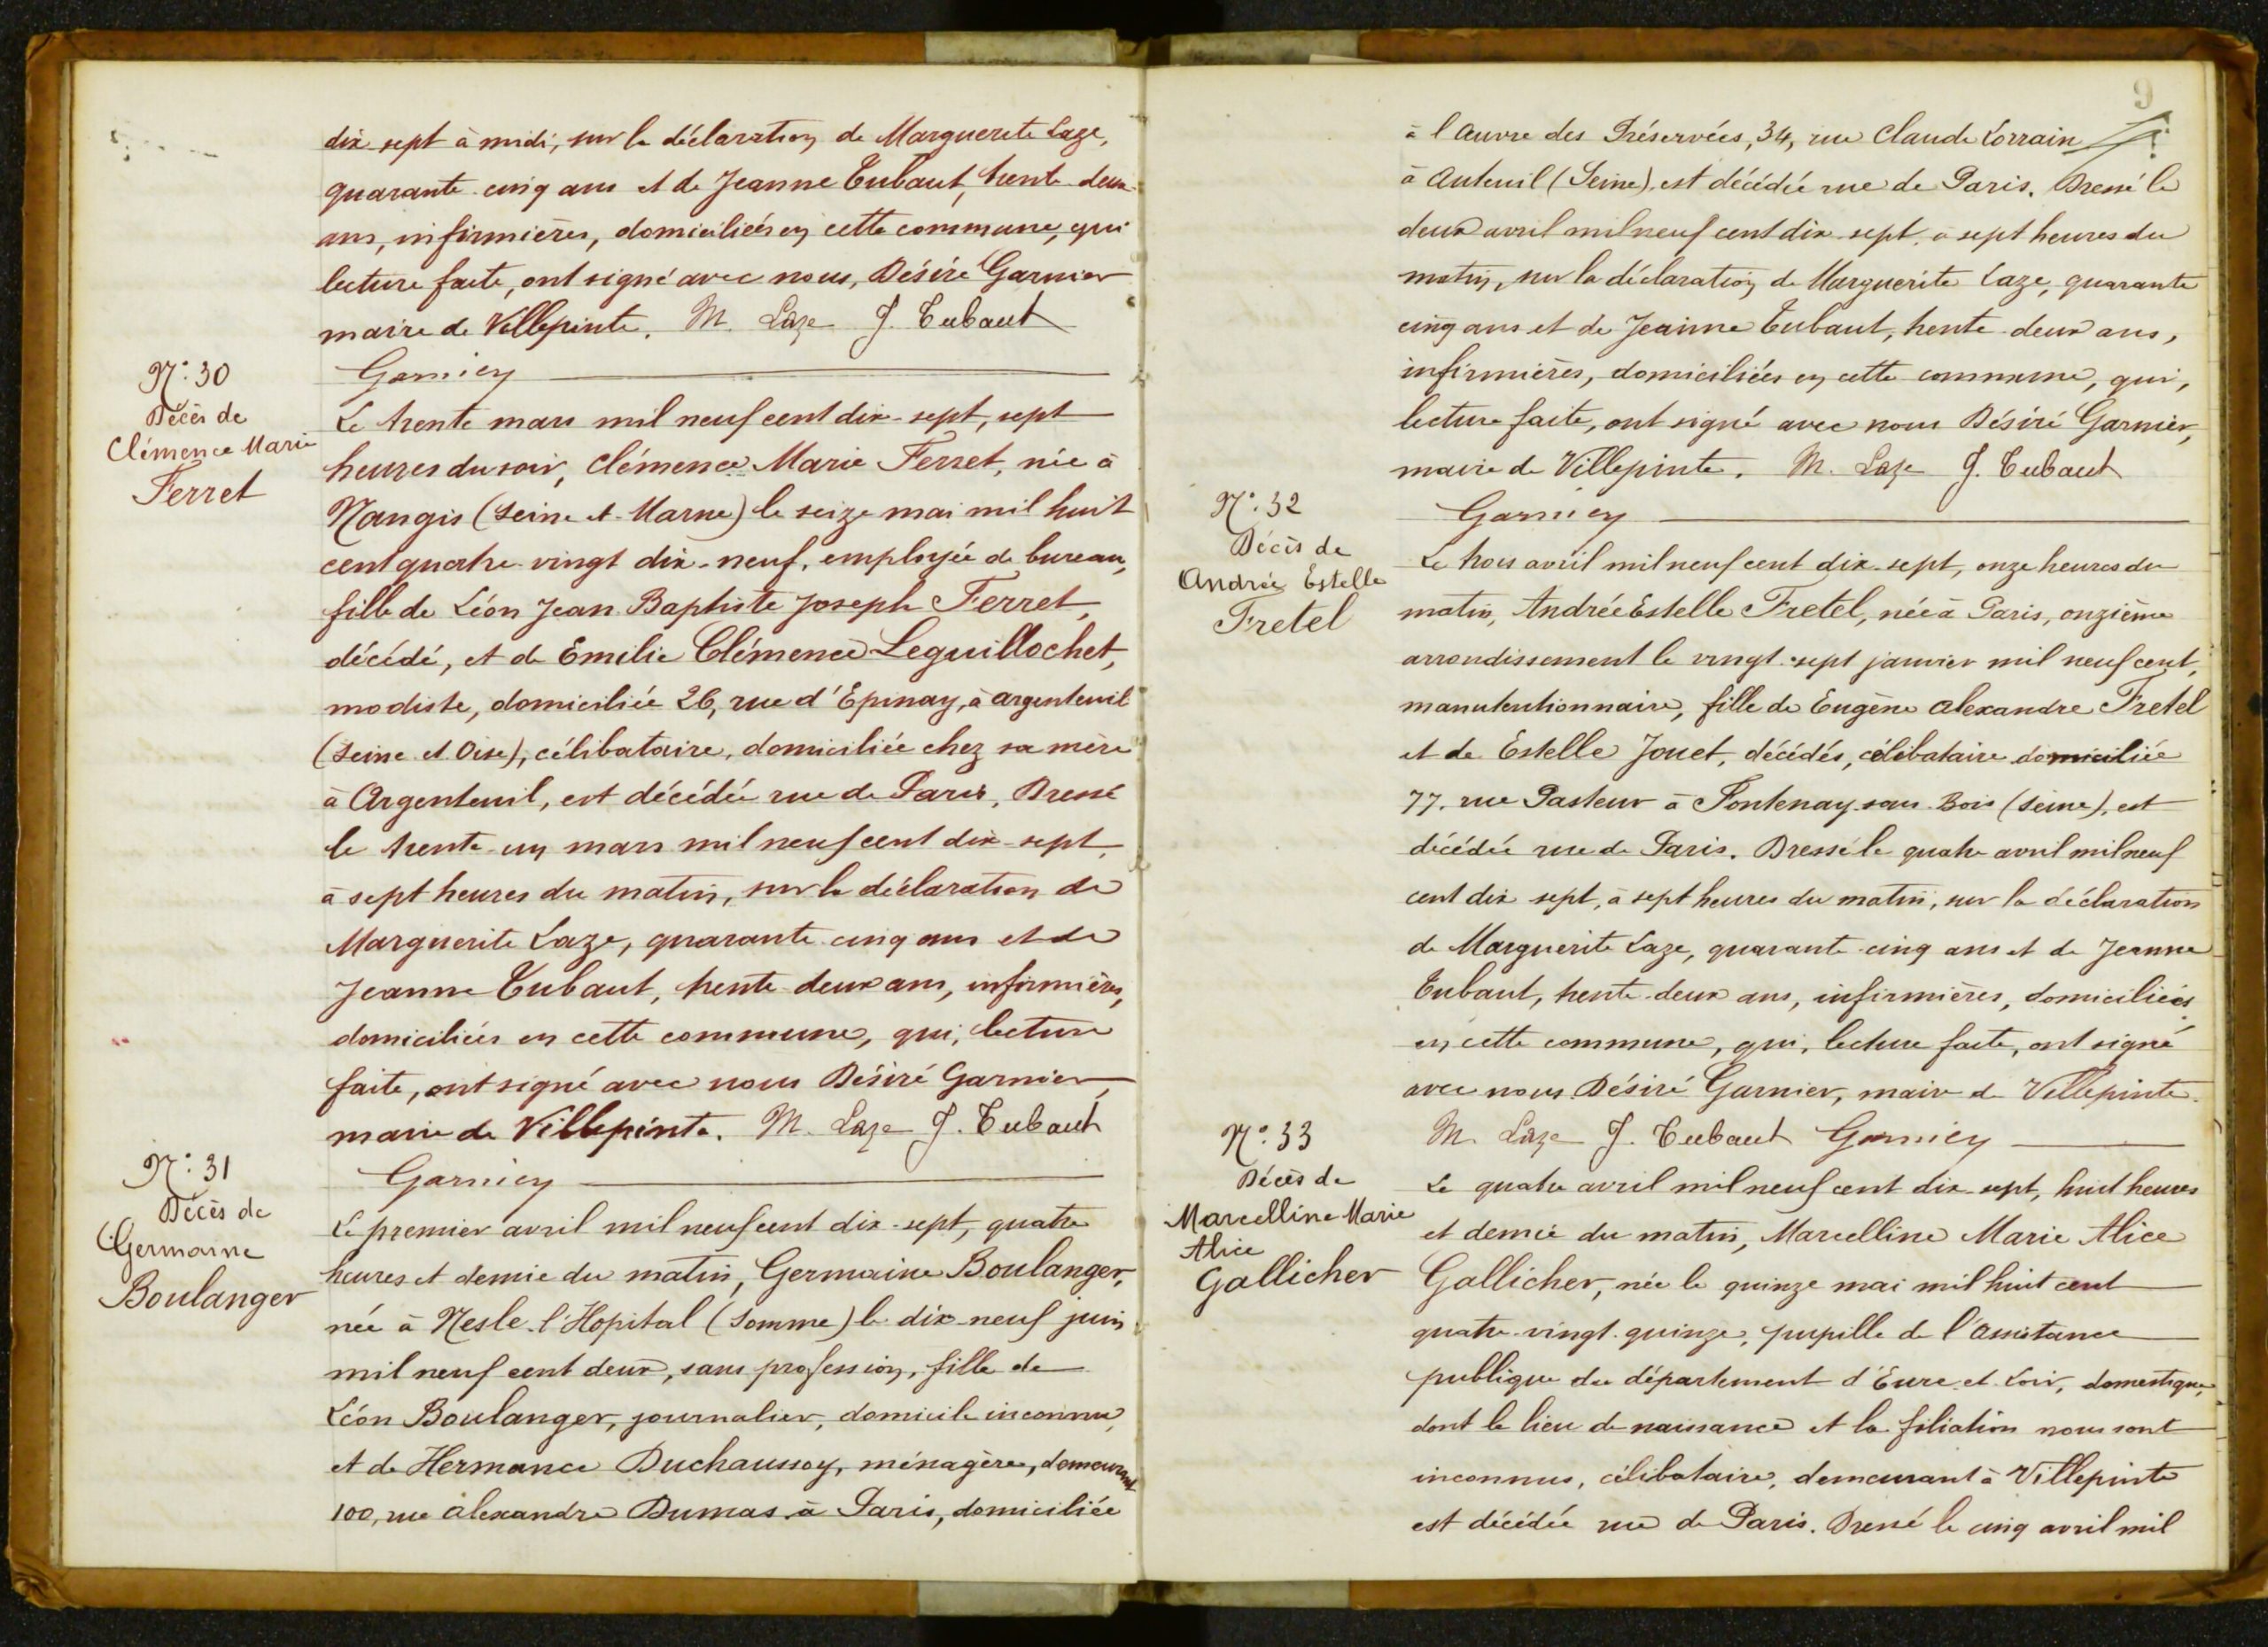 dix sept à midi, sur la déclaration de Marguerite Laze,
quarante cinq ans et de Jeanne Tubaut, trente deux
ans, infirmières, domiciliées en cette commune, qui
lecture faite, ont signé avec nous, Désiré Garnier
maire de Villepinte. M. Laze J. Tubaut
Garnier
N°: 30
Décès de
Clémence Marie
Ferret
Le trente mars mil neuf cent dix-sept, sept
heures du soir, Clémence Marie Ferret, née à
Nangis (Seine et Marne) le seize mai mil huit
cent quatre vingt dix-neuf, employée de bureau,
fille de Léon Jean Baptiste Joseph Ferret,
décédé, et de Emilie Clémence Leguillochet,
modiste, domiciliée 26, rue d'Epinay, à Argenteuil
(Seine et Oise), célibataire, domiciliée chez sa mère
à Argenteuil, est décédée rue de Paris, Dressé
le trente-un mars mil neuf cent dix-sept,
à sept heures du matin, sur la déclaration de
Marguerite Laze, quarante-cinq ans et de
Jeanne Tubaut, trente-deux ans, infirmières,
domiciliées en cette commune, qui, lecture
faite, ont signé avec nous Désiré Garnier,
maire de Villepinte. M. Laze J. Tubaut
Garnier
N°: 31
Décès de
Germaine
Boulanger
Le premier avril mil neuf cent dix-sept, quatre
heures et demie du matin, Germaine Boulanger,
née à Nesle-l'Hopital (Somme) le dix-neuf juin
mil neuf cent deux, sans profession, fille de
Léon Boulanger, journalier, domicile inconnu,
et de Hermance Duchaussoy, ménagère, demeurant
100, rue Alexandre Dumas à Paris, domiciliée
9
à l'Œuvre des Préservées, 34, rue Claude Lorrain
à Auteuil (Seine), est décédée rue de Paris. Dressé le
deux avril mil neuf cent dix-sept, à sept heures du
matin, sur la déclaration de Marguerite Laze, quarante
cinq ans et de Jeanne Tubaut, trente-deux ans,
infirmières, domiciliées en cette commune, qui,
lecture faite, ont signé avec nous Désiré Garnier,
maire de Villepinte. M. Laze J. Tubaut
Garnier
N°: 32
Décès de
Andrée Estelle
Fretel
Le trois avril mil neuf cent dix-sept, onze heures du
matin, Andrée Estelle Fretel, née à Paris, onzième
arrondissement le vingt-sept janvier mil neuf cent,
manutentionnaire, fille de Eugène Alexandre Fretel
et de Estelle Jouet, décédés, célibataire domiciliée
77, rue Pasteur à Fontenay-sous-Bois (Seine), est
décédée rue de Paris. Dressé le quatre avril mil neuf
cent dix sept, à sept heures du matin, sur la déclaration
de Marguerite Laze, quarante-cinq ans et de Jeanne
Tubaut, trente-deux ans, infirmières, domiciliées
en cette commune, qui, lecture faite, ont signé
avec nous Désiré Garnier, maire de Villepinte.
M. Laze J. Tubaut Garnier
N°: 33
Décès de
Marcelline Marie
Alice
Gallicher
Le quatre avril mil neuf cent dix-sept, huit heures
et demie du matin, Marcelline Marie Alice
Gallicher, née le quinze mai mil huit cent
quatre-vingt-quinze, pupille de l'Assistance
publique du département d'Eure et Loir, domestique,
dont le lieu de naissance et la filiation nous sont
inconnus, célibataire, demeurant à Villepinte
est décédée rue de Paris. Dressé le cinq avril mil